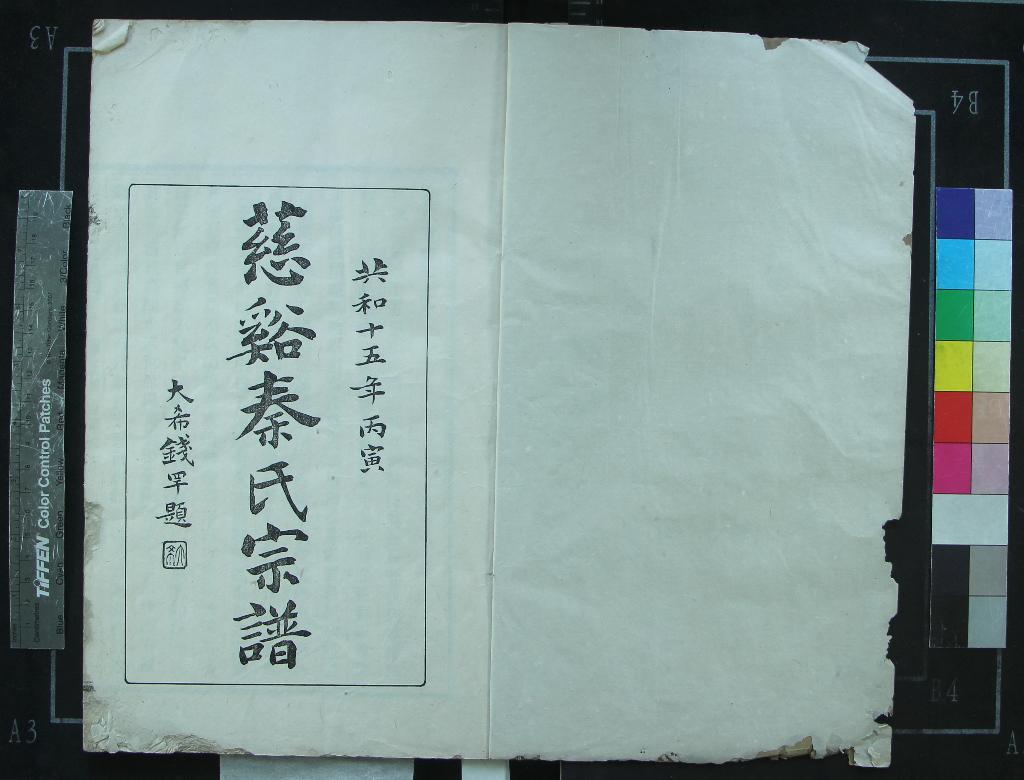 共和十五年丙寅
慈谿秦氏宗譜
大希錢罕題
A3
B4
B4
A3
A
TIFFEN Color Control Patches
Blue
Cyan
Green
Yellow
Red
Magenta
White
3/Color
Black